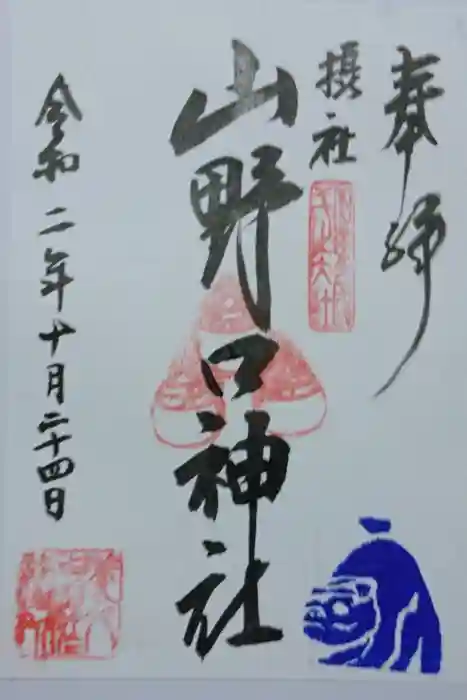 奉拝
摂社
山野口神社
令和二年十月二十四日